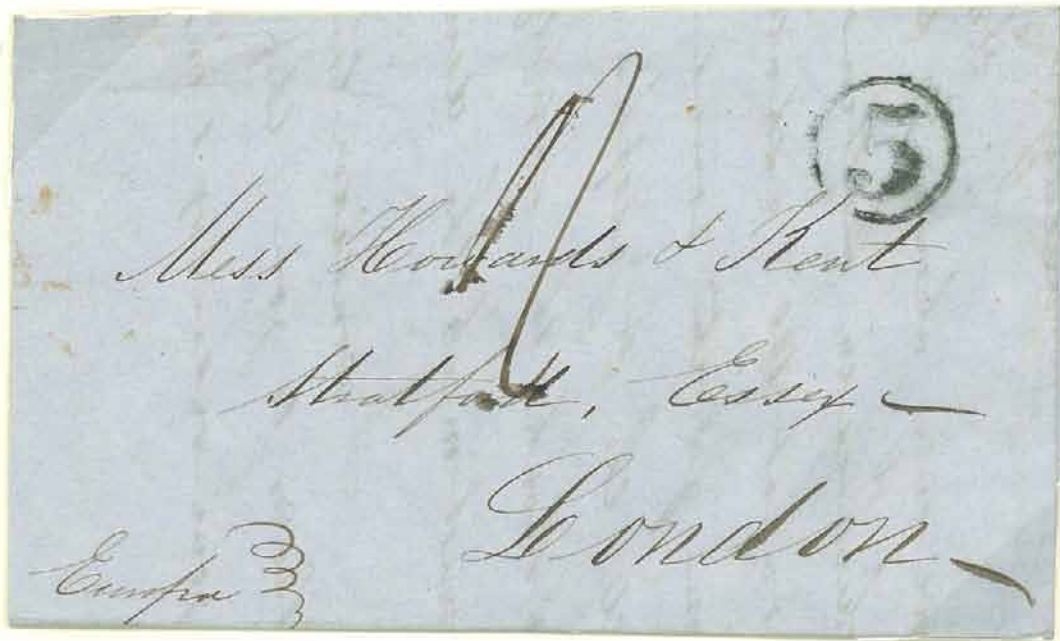 5
Mess Howards & Kent
Stratford, Essex
London
Europa